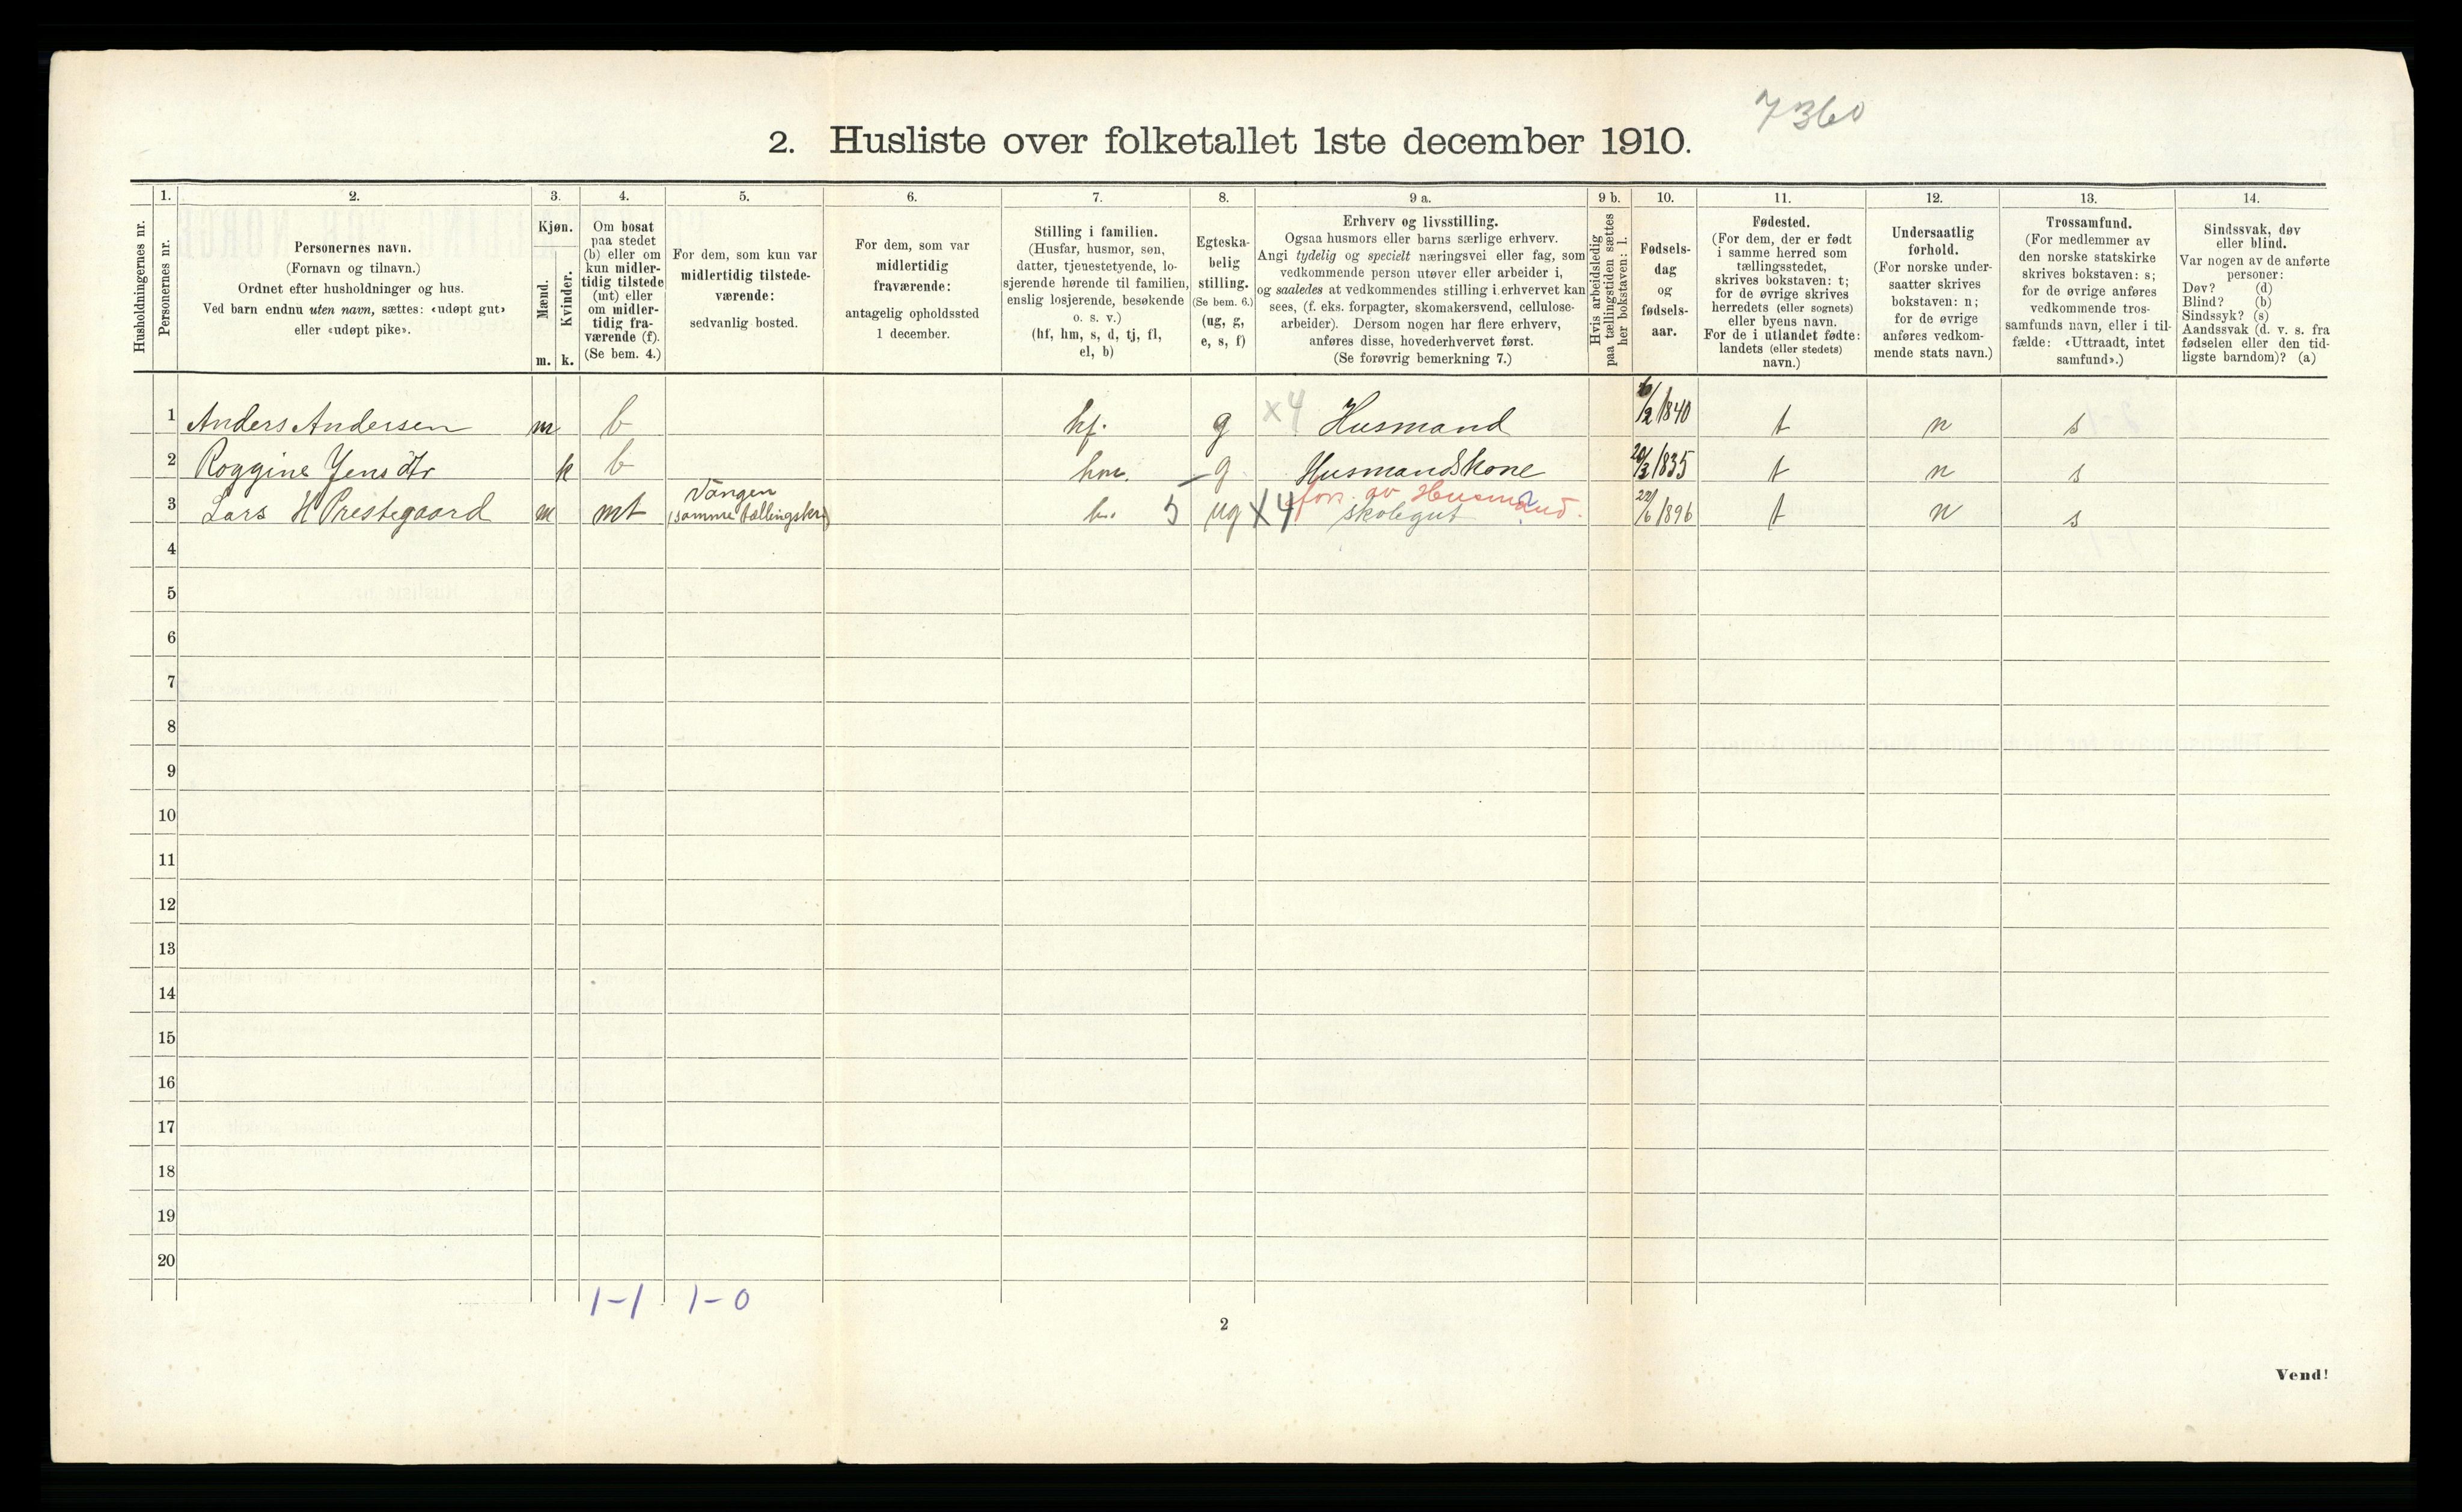 7360
2. Husliste over folketallet 1ste december 1910.
Husholdningernes nr.
1.
Personernes nr.
2.
Personernes navn.
(Fornavn og tilnavn.)
Ordnet efter husholdninger og hus.
Ved barn endnu uten navn, sættes: «udøpt gut»
eller «udøpt pike».
3.
Kjøn.
Mænd.
Kvinder.
m. k.
4.
Om bosat
paa stedet
(b) eller om
kun midler-
tidig tilstede
(mt) eller
om midler-
tidig fra-
værende (f).
(Se bem. 4.)
5.
For dem, som kun var
midlertidig tilstede-
værende:
sedvanlig bosted.
6.
For dem, som var
midlertidig
fraværende:
antagelig opholdssted
1 december.
7.
Stilling i familien.
(Husfar, husmor, søn,
datter, tjenestetyende, lo-
sjerende hørende til familien,
enslig losjerende, besøkende
o. s. v.)
(hf, hm, s, d, tj, fl,
el, b)
8.
Egteska-
belig
stilling.
(Se bem. 6.)
(ug, g,
e, s, f)
9 a.
Erhverv og livsstilling.
Ogsaa husmors eller barns særlige erhverv.
Angi tydelig og specielt næringsvei eller fag, som
vedkommende person utøver eller arbeider i,
og saaledes at vedkommendes stilling i erhvervet kan
sees, (f. eks. forpagter, skomakersvend, cellulose-
arbeider). Dersom nogen har flere erhverv,
anføres disse, hovederhvervet først.
(Se forøvrig bemerkning 7.)
9 b.
Hvis arbeidsledig
paa tællingstiden sættes
her bokstaven: l.
10.
Fødsels-
dag
og
fødsels-
aar.
11.
Fødested.
(For dem, der er født
i samme herred som
tællingsstedet,
skrives bokstaven: t;
for de øvrige skrives
herredets (eller sognets)
eller byens navn.
For de i utlandet fødte:
landets (eller stedets)
navn.)
12.
Undersaatlig
forhold.
(For norske under-
saatter skrives
bokstaven: n;
for de øvrige
anføres vedkom-
mende stats navn.)
13.
Trossamfund.
(For medlemmer av
den norske statskirke
skrives bokstaven: s;
for de øvrige anføres
vedkommende tros-
samfunds navn, eller i til-
fælde: «Uttraadt, intet
samfund».)
14.
Sindssvak, døv
eller blind.
Var nogen av de anførte
personer:
Døv? (d)
Blind? (b)
Sindssyk? (s)
Aandssvak (d. v. s. fra
fødselen eller den tid-
ligste barndom)? (a)
1 Anders Andersen m b hf. g x4 Husmand /2 1840 t n s
2 Roggine Jensdtr k b hm. g Husmandskone 20/3 1835 t n s
3 Lars H Prestegaard m mt Vangen (samme tællingskr.) b. 5 ug X4 fors. av Husmand. skolegut 22/6 1896 t n s
4
5
6
7
8
9
10
11
12
13
14
15
16
17
18
19
20
1-1 1-0
2
Vend!